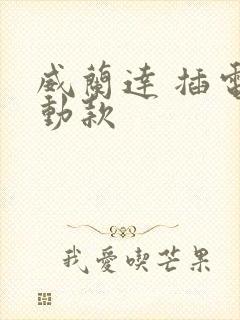 威蘭達 插電
動款
我愛喫芒果